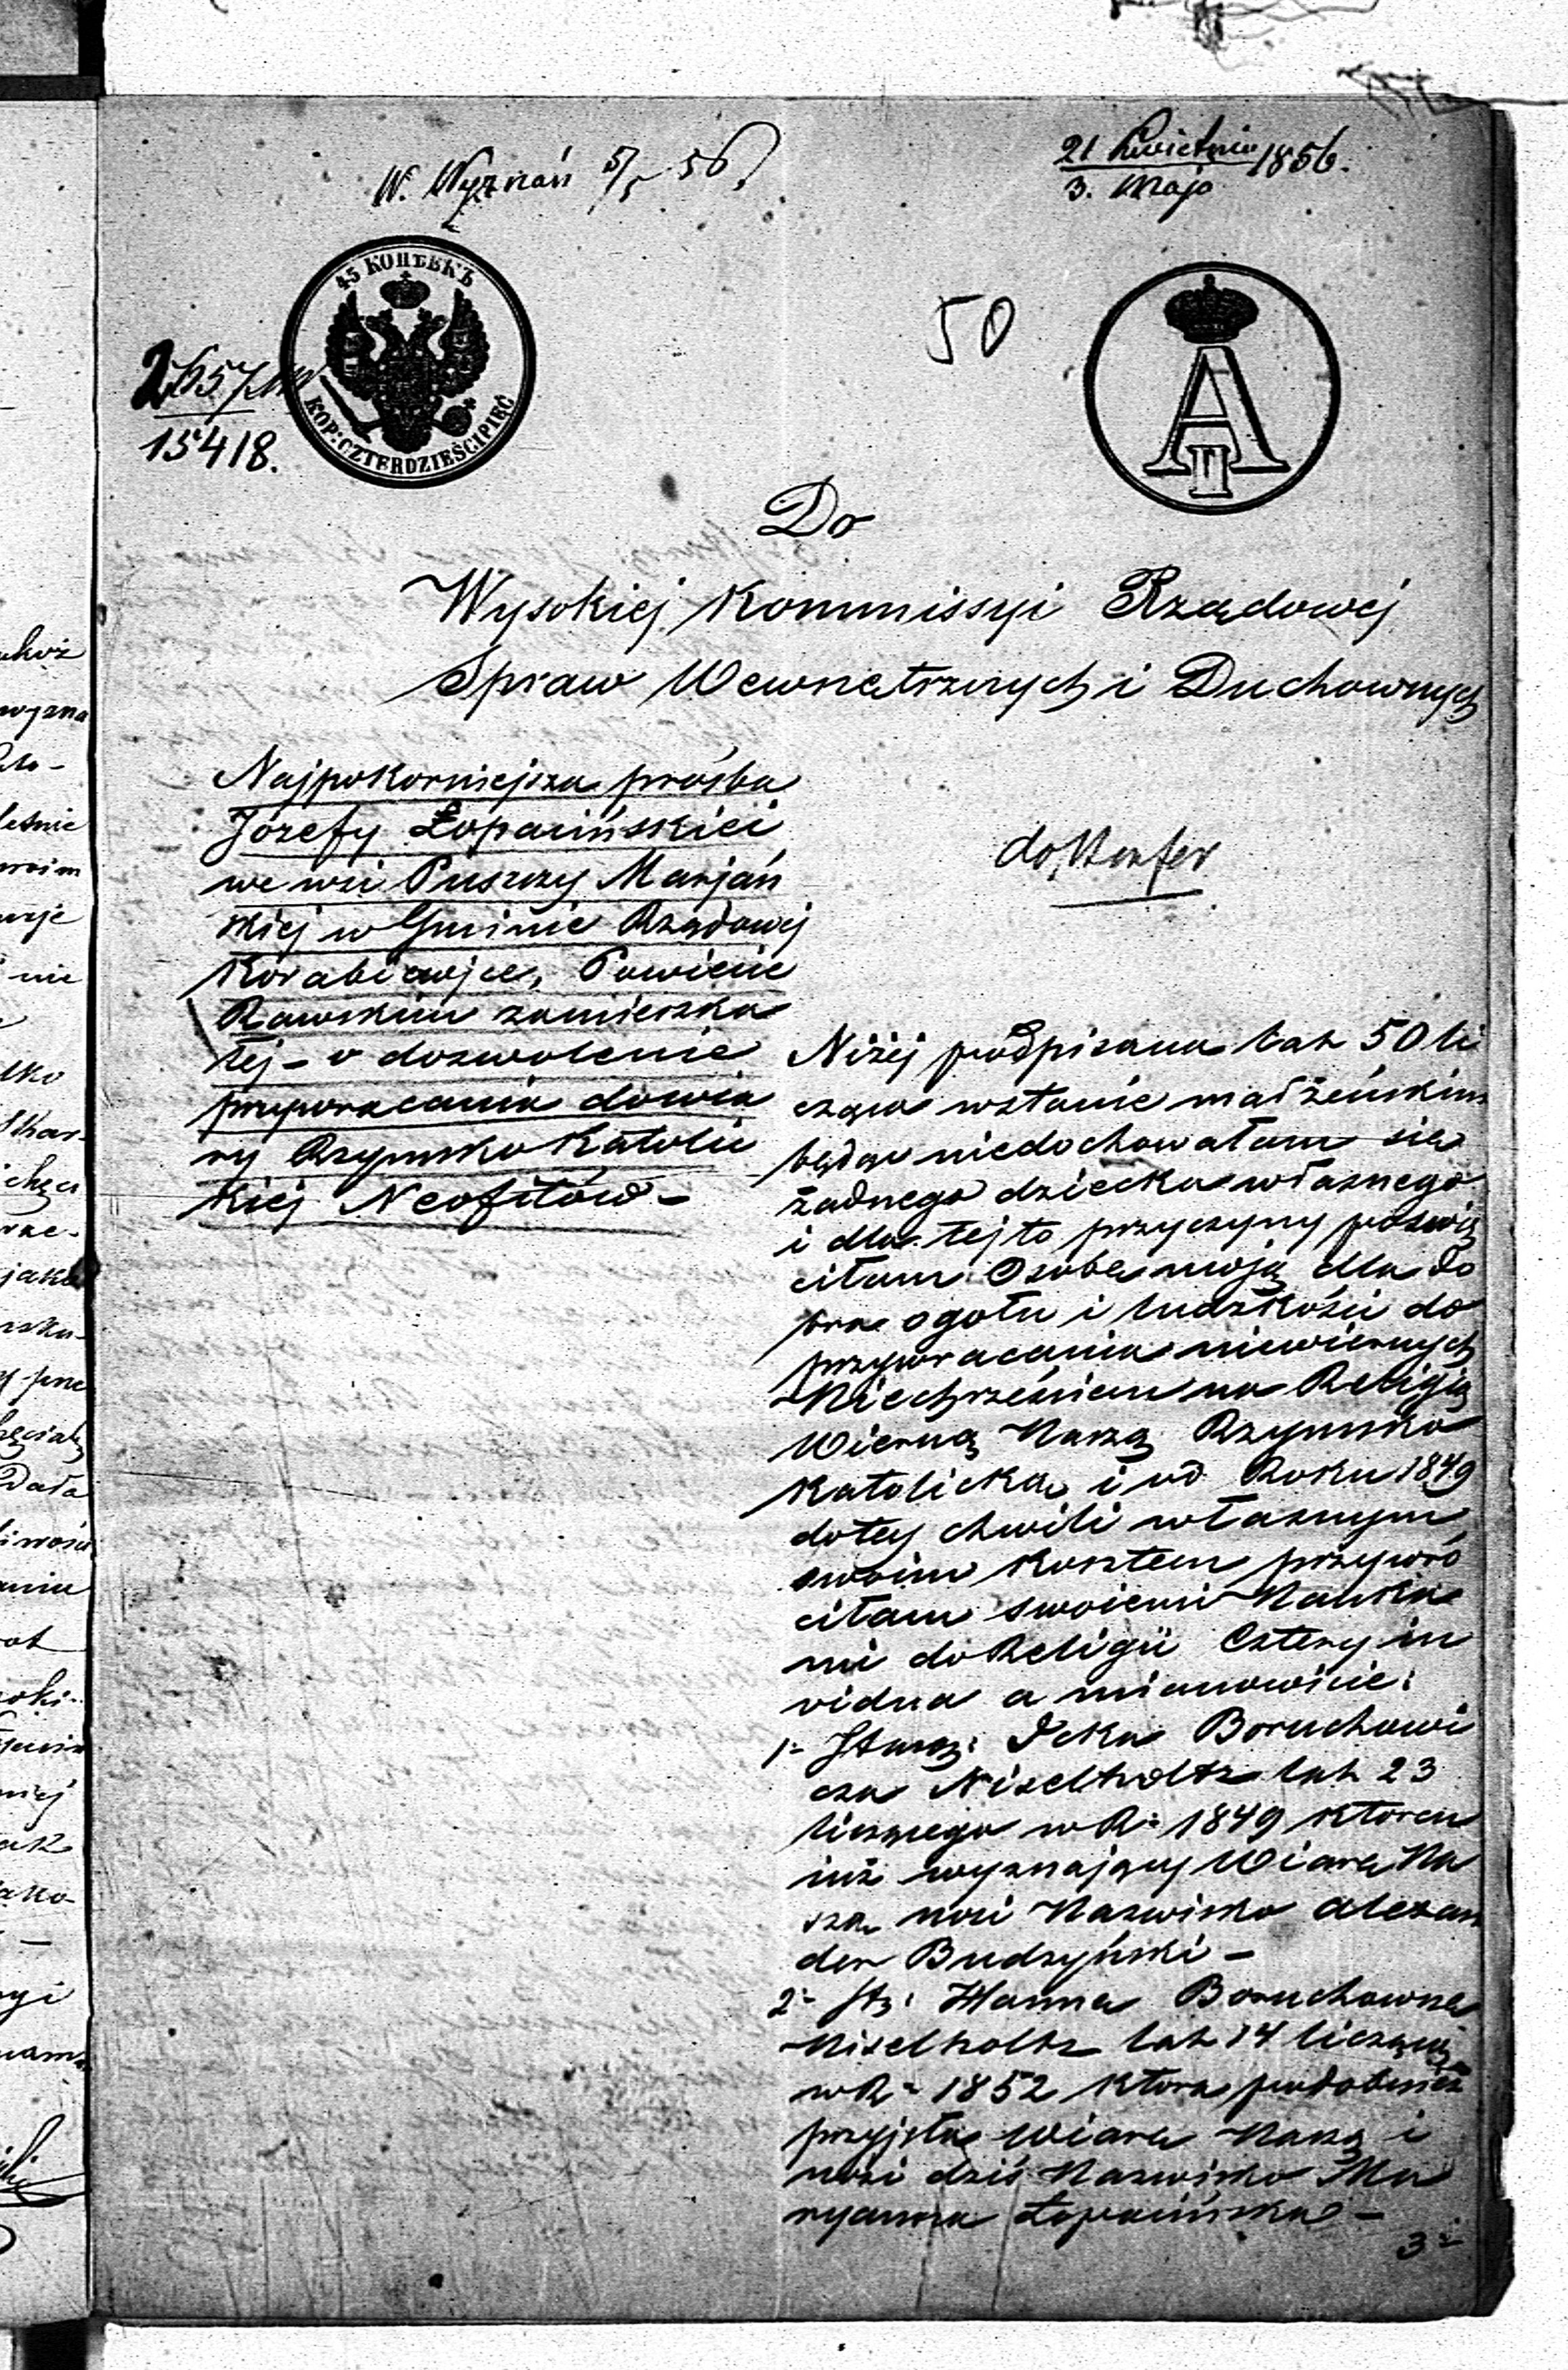 W. Wyznań 5/5 56.
21 Kwietnia
3. Maja 1856.
45 КОПѢЕКЪ
KOP: CZTERDZIEŚCI PIĘĆ
50
А
II
15418.
Do
Wysokiej Kommissyi Rządowej
Spraw Wewnetrznych i Duchownych
Najpokorniejsza prośba
Józefy Łopacińskiei
we wsi Puszczy Marjań
skiej w Gminie Rządowej
Korabiewice, Powiecie
Rawskim zamieszka
łej - o dozwolenie
przywracania do wia
ry Rzymsko Katolic
kiej Neofitów -
Niżej podpisana lat 50 li
cząca w stanie małżeńskim
będąc niedochowałam się
żadnego dziecka własnego
i dla tej to przyczyny poświę
ciłam Osobę moją dla do
bra ogołu i ludzkości do
przywracania niewiernych
Niechrześcian na Religią
Wierną Naszą Rzymsko
Katolicką i od Roku 1849
do tey chwili własnym
swoim kosztem przywró
ciłam swoiemi Nauka
mi do Religii Cztery in
vidua a mianowicie:
1- Staroz: Icka Boruchowi
cza Niselholtz lat 23
liczącego w R: 1849 ktoren
iuż wyznający Wiarę Na
szą nosi Nazwisko Alexan
der Budzyński -
2- St: Hanna Boruchowna
Niselholtz lat 14 licząca
w R: 1852 ktora podobnież
przyjęła Wiarę Naszą i
nosi dziś Nazwisko Ma
ryanna Łopacińska -
3-